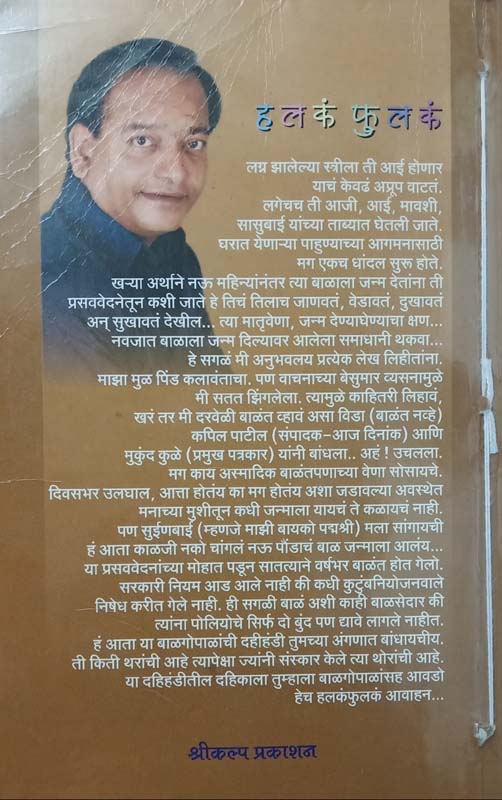 हलकं फुलकं
लग्न झालेल्या स्त्रीला ती आई होणार
याचं केवढं अप्रूप वाटतं.
लगेचच ती आजी, आई, मावशी,
सासुबाई यांच्या ताब्यात घेतली जाते.
घरात येणाऱ्या पाहुण्याच्या आगमनासाठी
मग एकच धांदल सुरू होते.
खऱ्या अर्थाने नऊ महिन्यांनंतर त्या बाळाला जन्म देतांना ती
प्रसववेदनेतून कशी जाते हे तिचं तिलाच जाणवतं, वेडावतं, दुखावतं
अन् सुखावतं देखील... त्या मातृवेणा, जन्म देण्याघेण्याचा क्षण...
नवजात बाळाला जन्म दिल्यावर आलेला समाधानी थकवा...
हे सगळं मी अनुभवलय प्रत्येक लेख लिहीतांना.
माझा मुळ पिंड कलावंताचा. पण वाचनाच्या बेसुमार व्यसनामुळे
मी सतत झिंगलेला. त्यामुळे काहितरी लिहावं,
खरं तर मी दरवेळी बाळंत व्हावं असा विडा (बाळंत नव्हे)
कपिल पाटील (संपादक-आज दिनांक) आणि
मुकुंद कुळे (प्रमुख पत्रकार) यांनी बांधला.. अहं ! उचलला.
मग काय अस्मादिक बाळंतपणाच्या वेणा सोसायचे.
दिवसभर उलघाल, आत्ता होतंय का मग होतंय अशा जडावल्या अवस्थेत
मनाच्या मुशीतून कधी जन्माला यायचं ते कळायचं नाही.
पण सुईणबाई (म्हणजे माझी बायको पद्मश्री) मला सांगायची
हं आता काळजी नको चांगलं नऊ पौंडाचं बाळ जन्माला आलंय...
या प्रसववेदनांच्या मोहात पडून सातत्याने वर्षभर बाळंत होत गेलो.
सरकारी नियम आड आले नाही की कधी कुटुंबनियोजनवाले
निषेध करीत गेले नाही. ही सगळी बाळं अशी काही बाळसेदार की
त्यांना पोलियोचे सिर्फ दो बुंद पण द्यावे लागले नाहीत.
हं आता या बाळगोपाळांची दहीहंडी तुमच्या अंगणात बांधायचीय.
ती किती थरांची आहे त्यापेक्षा ज्यांनी संस्कार केले त्या थोरांची आहे.
या दहिहंडीतील दहिकाला तुम्हाला बाळगोपाळांसह आवडो
हेच हलकंफुलकं आवाहन...
श्रीकल्प प्रकाशन